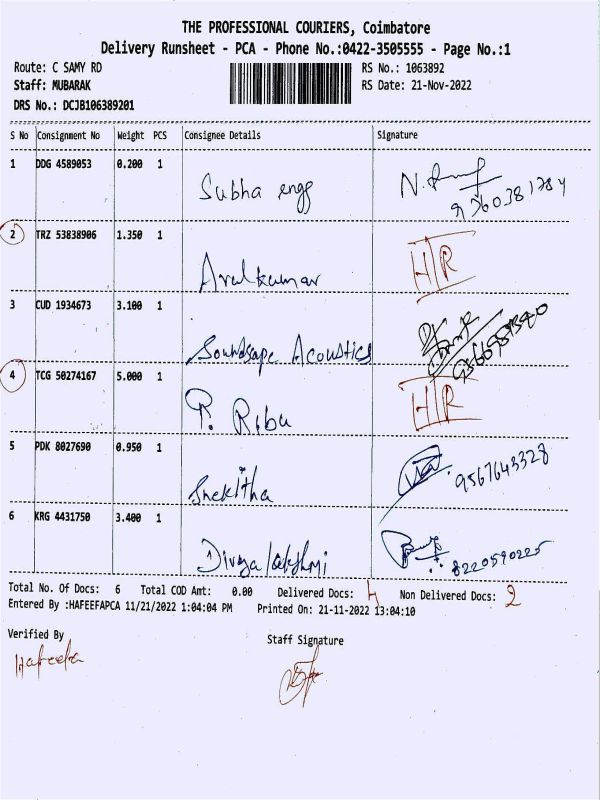 THE PROFESSIONAL COURIERS, Coimbatore
Delivery Runsheet - PCA - Phone No.:0422-3505555 - Page No.:1
Route: C SAMY RD
RS No.: 1063892
Staff: MUBARAK
RS Date: 21-Nov-2022
DRS No.: DCJB106389201
S No Consignment No Weight PCS Consignee Details Signature
1 DDG 4589053 0.200 1
Subha engg
2 TRZ 53838906 1.350 1 H/R
Arulkumar
3 CUD 1934673 3.100 1
Soundsape Acoustics
4 TCG 50274167 5.000 1 H/R
P. Ribu
5 PDK 8027690 0.950 1
Snekitha 9567643328
6 KRG 4431750 3.400 1
Divya lakshmi 8220590225
Total No. Of Docs: 6 Total COD Amt: 0.00 Delivered Docs: 4 Non Delivered Docs: 2
Entered By :HAFEEFAPCA 11/21/2022 1:04:04 PM Printed On: 21-11-2022 13:04:10
Verified By Staff Signature
Hafeefa